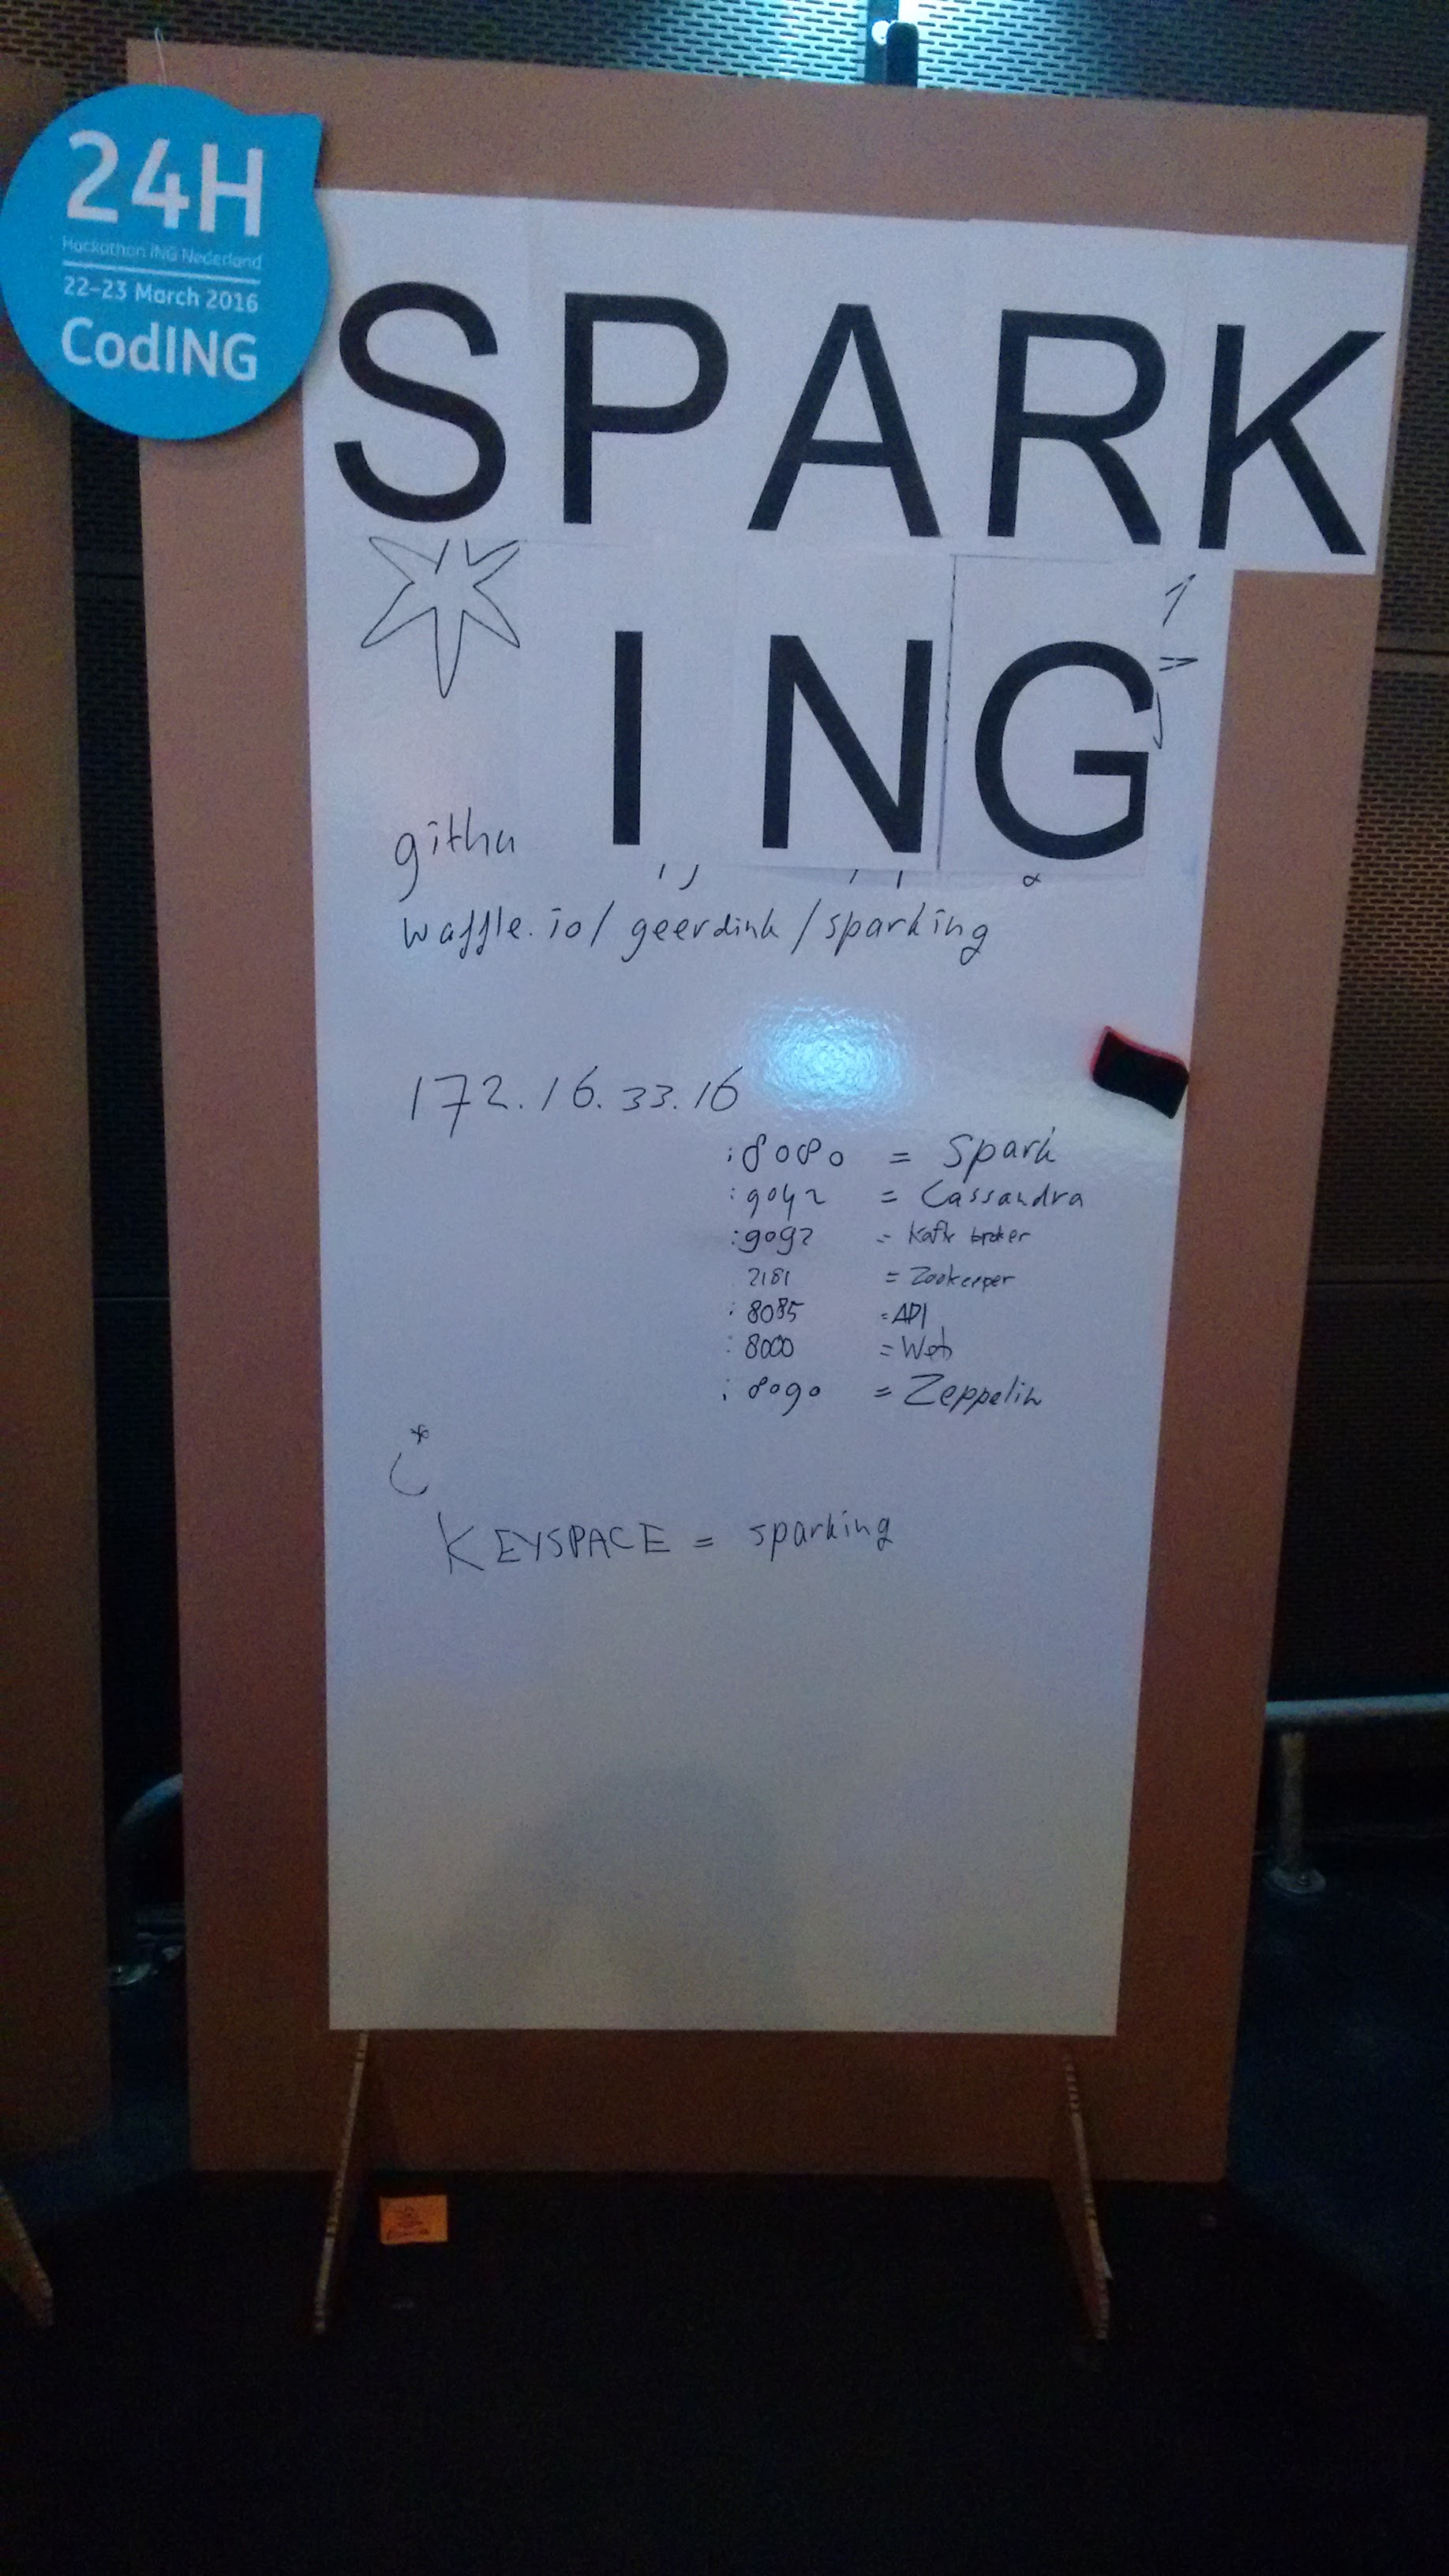 24H
Hackathon ING Nederland
22-23 March 2016
CodING
SPARK
ING
githu
waffle.io/geerdink/sparking
172.16.33.16
:8080 = Spark
:9042 = Cassandra
:9092 = Kafk broker
2181 = Zookeeper
:8085 = API
:8000 = Web
:8090 = Zeppelin
*
KEYSPACE = sparking